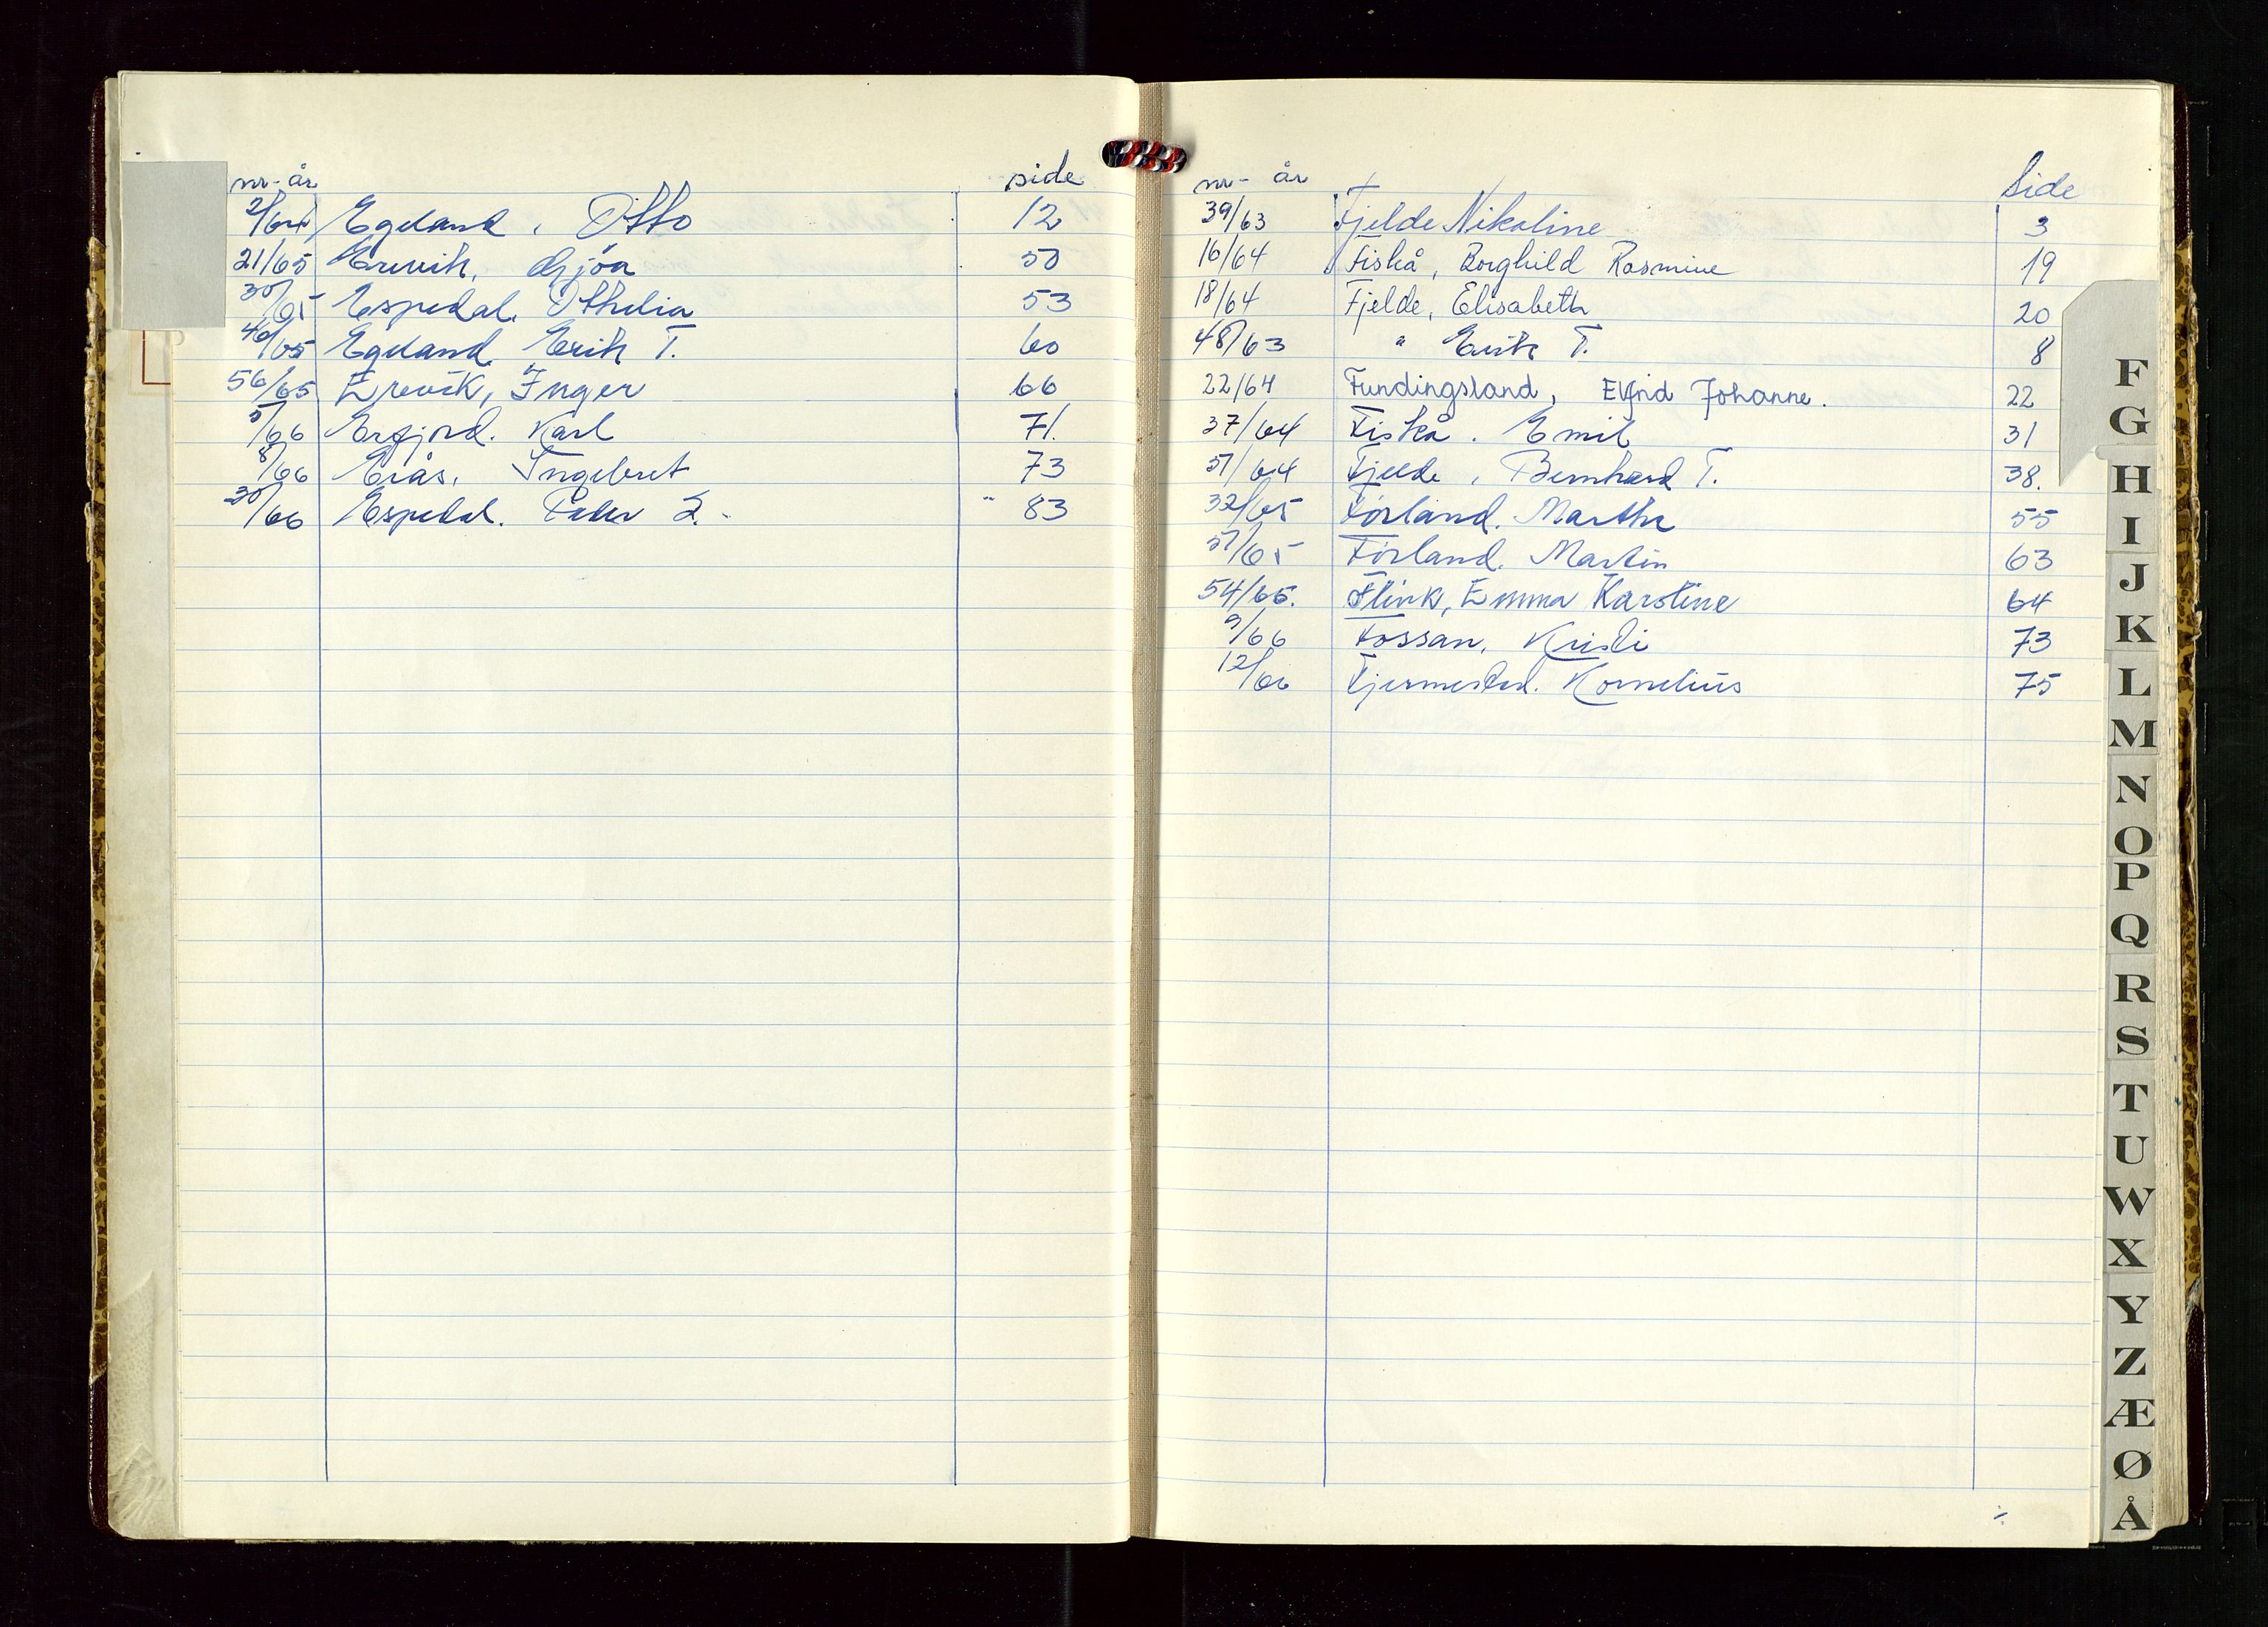 nr - år side
2/64 Egeland, Otto 12
21/65 Erevik, Gjöa 50
30/65 Espedal, Othelia 53
40/65 Egeland, Erik T. 60
56/65 Erevik, Inger 66
5/66 Erfjord. Karl 71.
8/66 Eiås, Ingebret 73
30/66 Espedal. Peder E. - " 83
nr - år Side
39/63 Fjelde Nikoline 3
16/64 Fiskå, Borghild Rasmine 19
18/64 Fjelde, Elisabeth 20
48/63 " Erik T. 8
22/64 Fundingsland, Johanne. 22
37/64 Fiskå. Emil 31
51/64 Fjelde, Bernhard T. 38.
32/65 Förland. Martha 55
51/65 Förland. Martin 63
54/65. Flink, Emma Karoline 64
9/66 Fossan, Kristi 73
12/66 Fjermestad. Kornelius 75
F
G
H
I
J
K
L
M
N
O
P
Q
R
S
T
U
W
X
Y
Z
Æ
Ø
Å